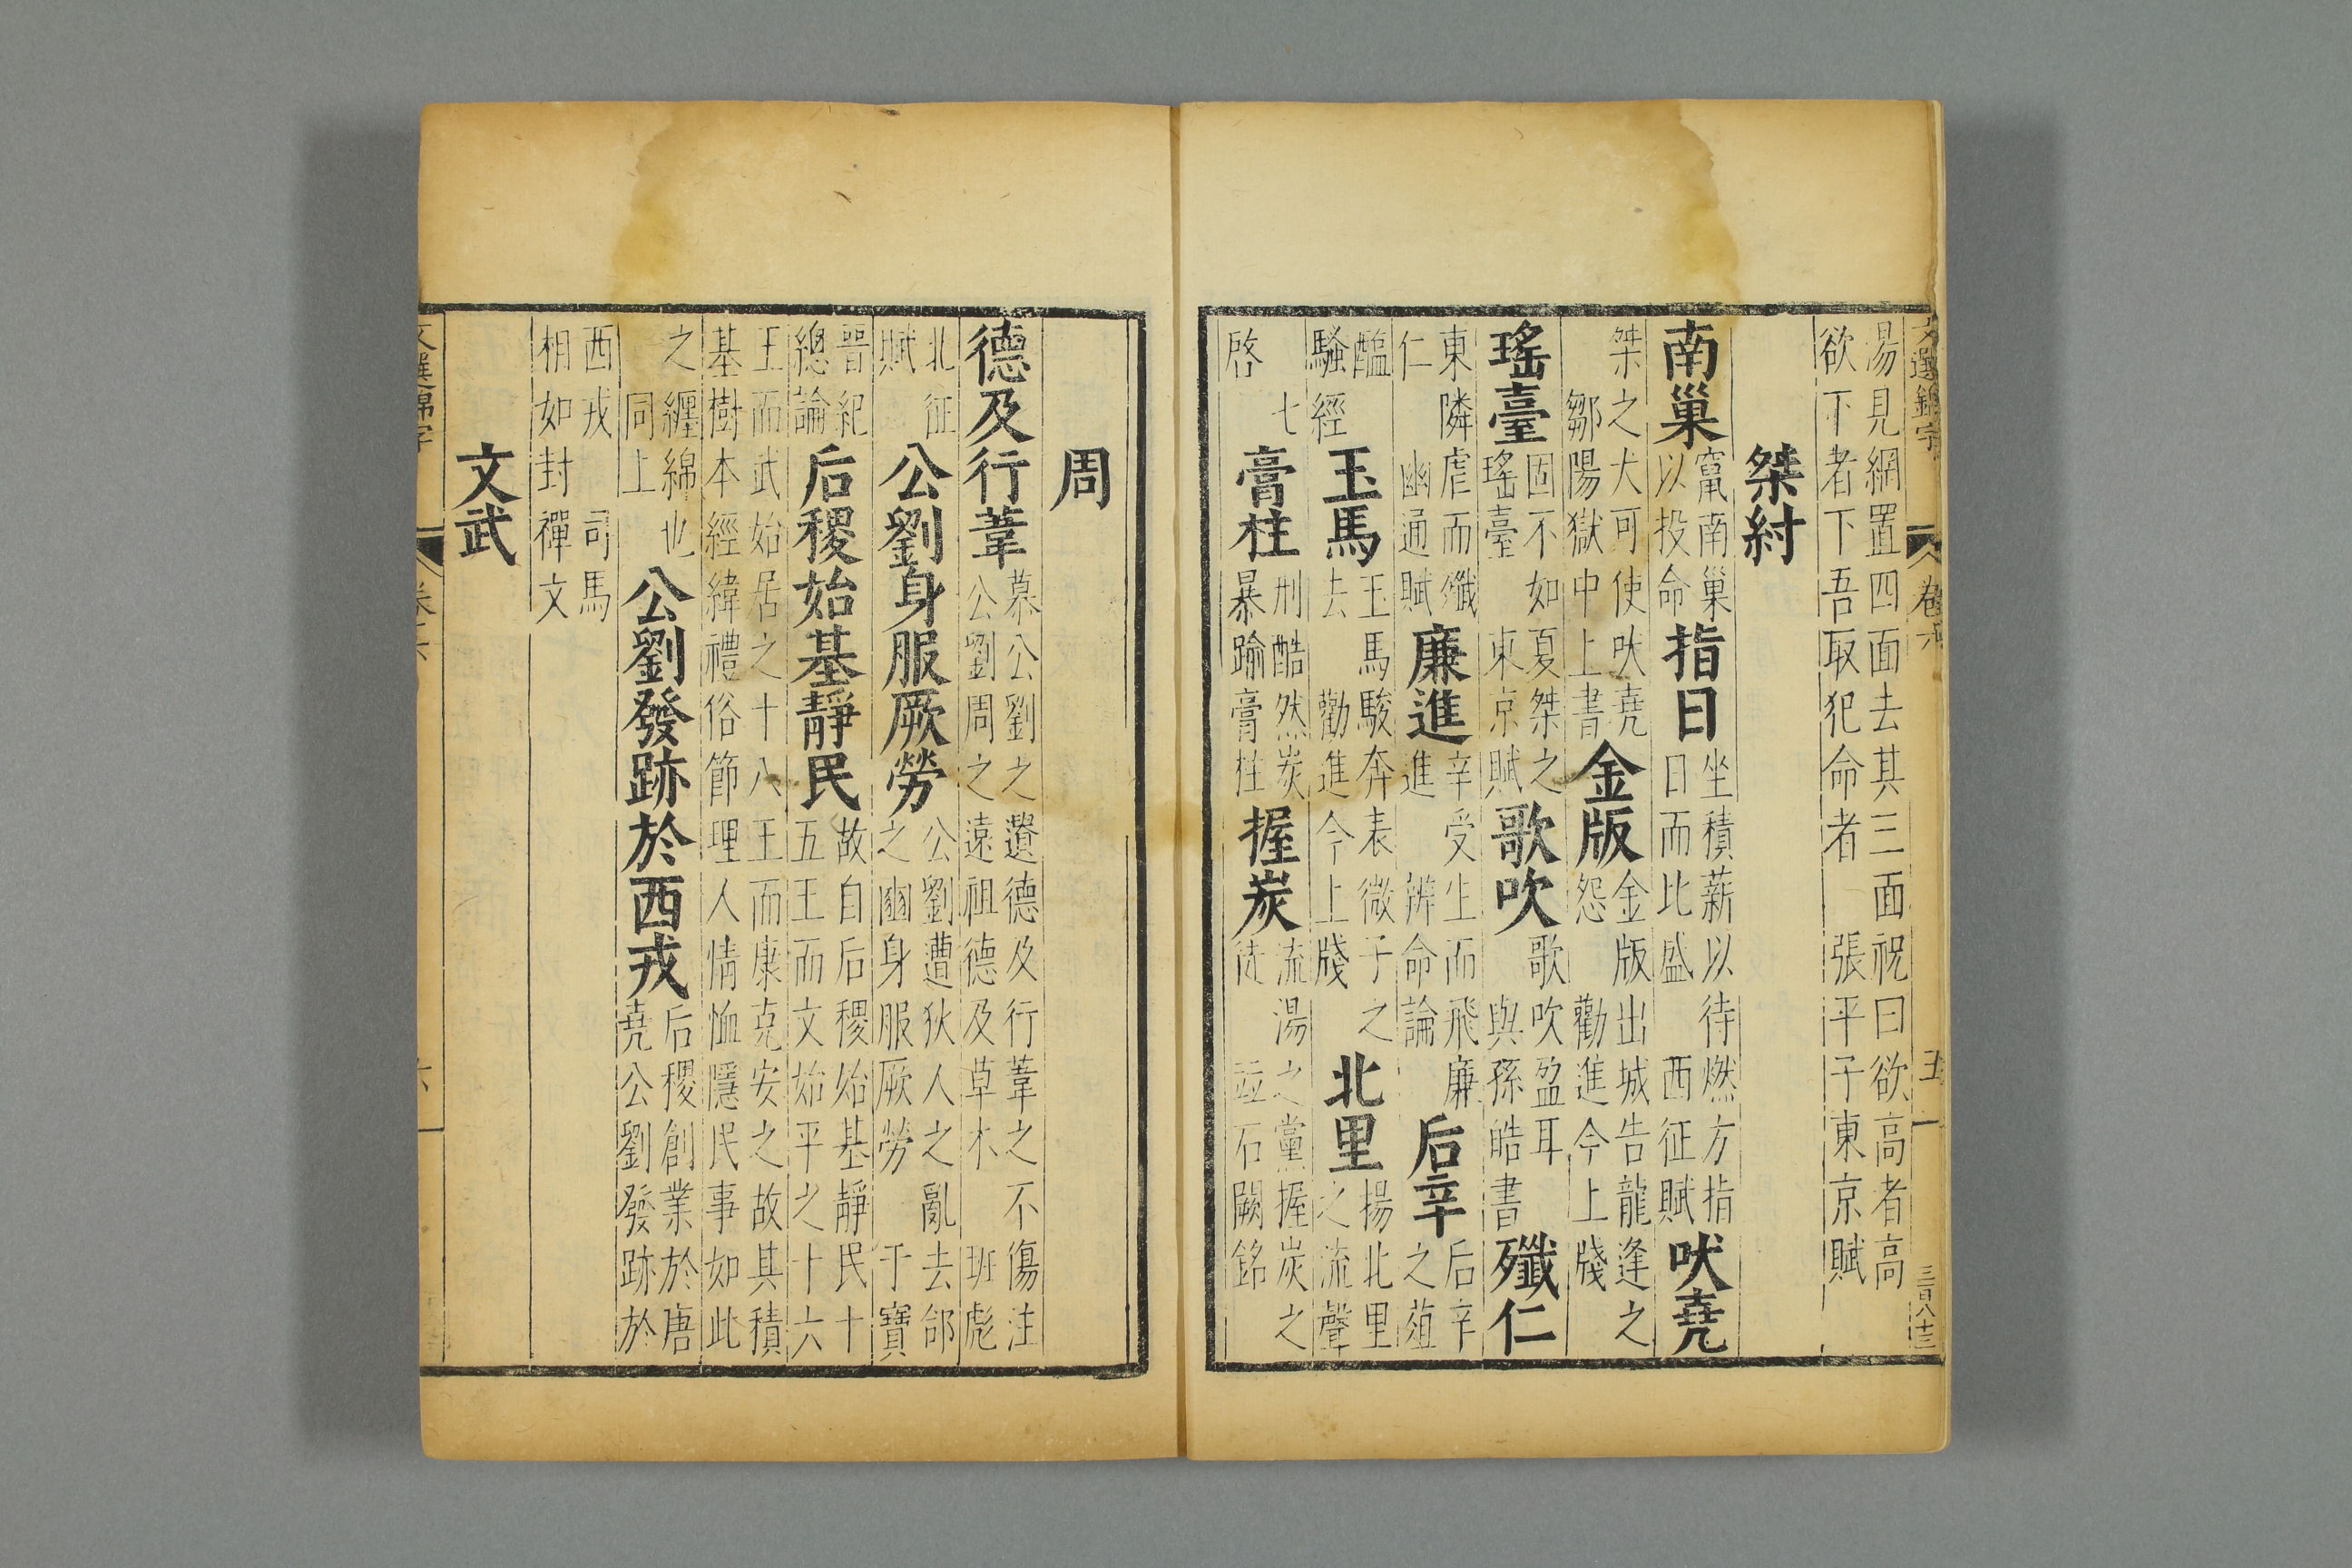 文選錦字 卷六 五 三百八十三
湯見網置四面去其三面祝曰欲高者高
欲下者下吾取犯命者 張平子東京賦
桀紂
南巢 竄南巢以投命 指日 坐積薪以待燃方指日而比盛 西征賦 吠堯
桀之犬可使吠堯 鄒陽獄中上書 金版 金版出城告龍逢之怨 勸進今上牋
瑤臺 固不如夏桀之瑤臺 東京賦 歌吹 歌吹盈耳 與孫皓書 殲仁
東隣虐而殲仁 幽通賦 廉進 辛受生而飛廉進 辨命論 后辛 后辛之葅
醢 騷經 玉馬 玉馬駿奔表微子之去 勸進今上牋 北里 揚北里之流聲
七啓 膏柱 刑酷然炭暴踰膏柱 握炭 流湯之黨握炭之徒 竝石闕銘
周
德及行葦 慕公劉之遺德及行葦之不傷注公劉周之遠祖德及草木 班彪
北征賦 公劉身服厥勞 公劉遭狄人之亂去邰之豳身服厥勞 于寶
晉紀總論 后稷始基靜民 故自后稷始基靜民十五王而文始平之十六
王而武始居之十八王而康克安之故其積
基樹本經緯禮俗節理人情恤隱民事如此
之纏綿也 同上 公劉發跡於西戎 后稷創業於唐堯公劉發跡於
西戎 司馬相如封禪文
文武
文選錦字 卷六 六